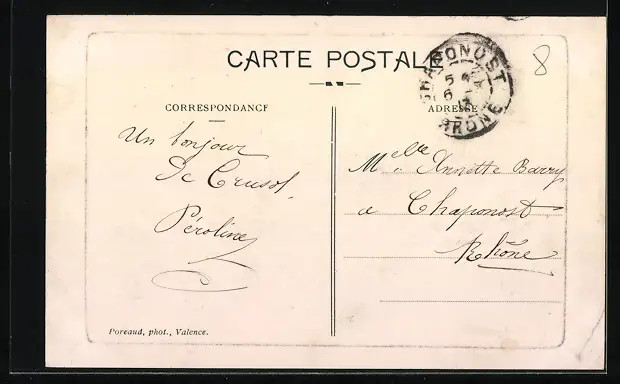 CARTE POSTALE
CHAPONOST
5
6
RHONE
8
CORRESPONDANCE
ADRESSE
Un bonjour
De Crusol.
Péroline
Melle Annette Barry
a Chaponost
Rhône
Poreaud, phot., Valence.